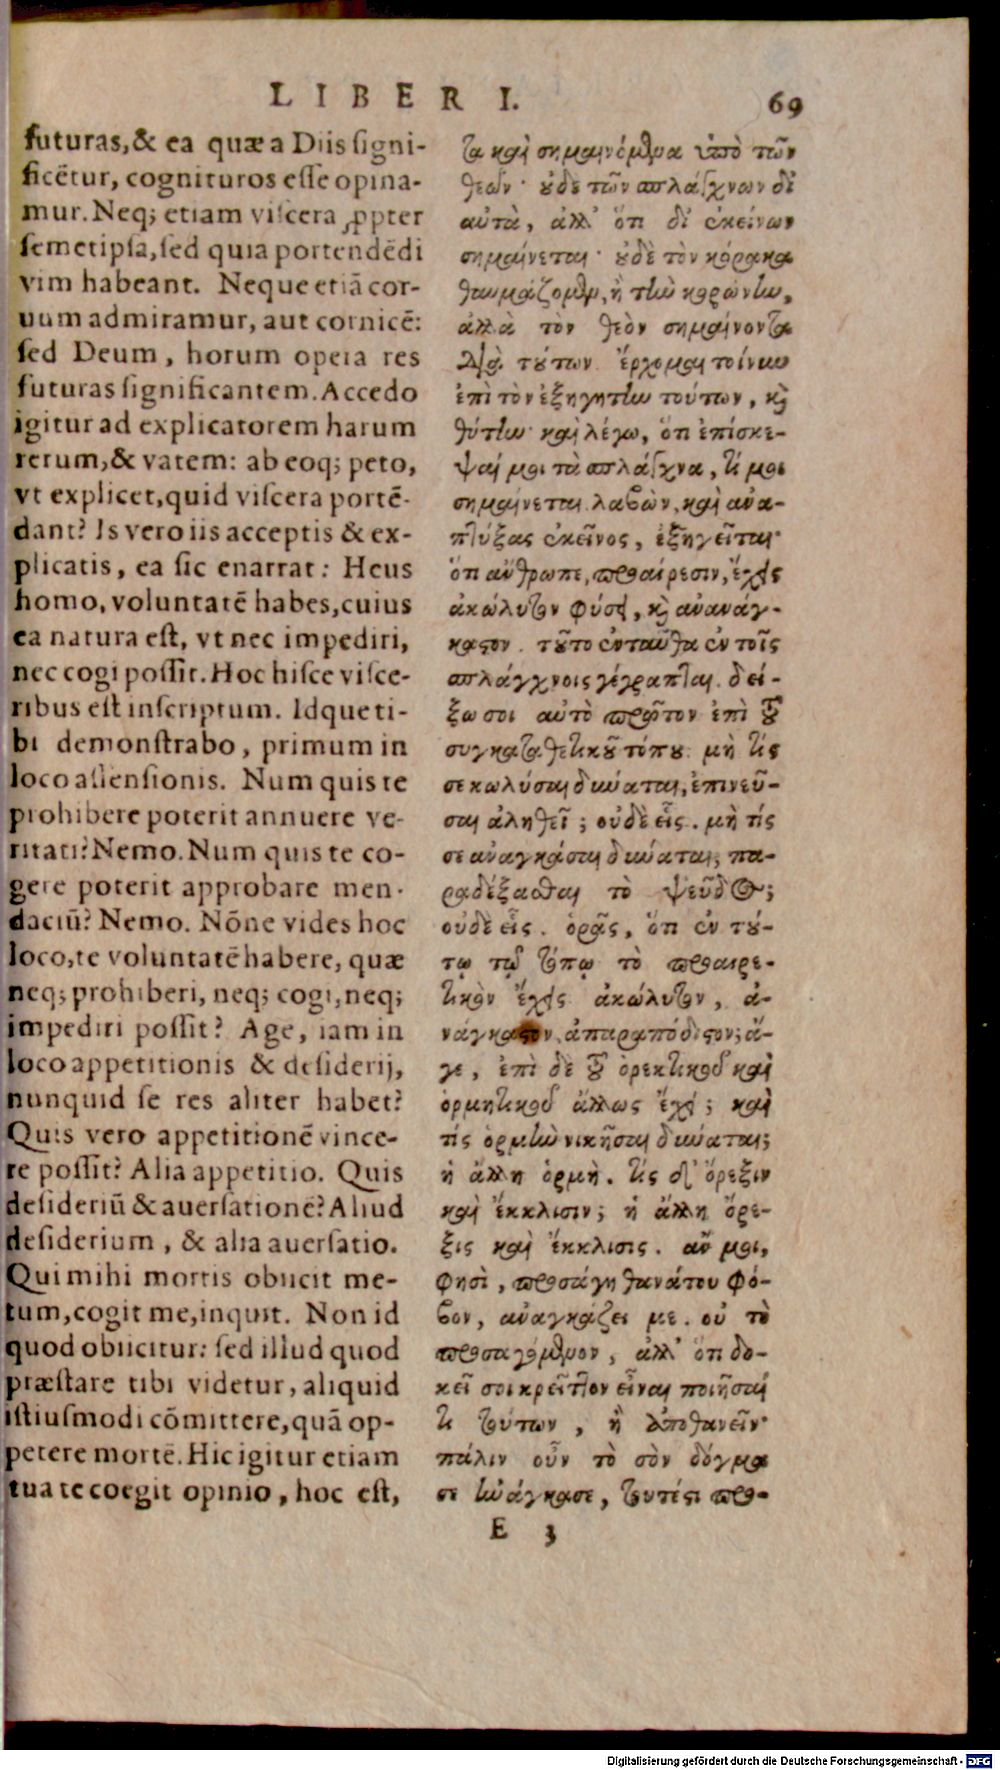 LIBERI I. 69
futuras, & ea quæ a Diis signi-
ficētur, cognituros esse opina-
mur. Neq; etiam viscera ꝓpter
semetipsa, sed quia portendēdi
vim habeant. Neque etiā cor-
uum admiramur, aut cornicē:
sed Deum, horum opera res
futuras significantem. Accedo
igitur ad explicatorem harum
rerum, & vatem: ab eoq; peto,
vt explicet, quid viscera portē-
dant? Is vero iis acceptis & ex-
plicatis, ea sic enarrat: Heus
homo, voluntatē habes, cuius
ea natura est, vt nec impediri,
nec cogi possit. Hoc hisce visce-
ribus est inscriptum. Idque ti-
bi demonstrabo, primum in
loco assensionis. Num quis te
prohibere poterit annuere ve-
ritati? Nemo. Num quis te co-
gere poterit approbare men-
daciū? Nemo. Nōne vides hoc
loco, te voluntatē habere, quæ
neq; prohiberi, neq; cogi, neq;
impediri possit? Age, iam in
loco appetitionis & desiderij,
nunquid se res aliter habet?
Quis vero appetitionē vince-
re possit? Alia appetitio. Quis
desideriū & auersationē? Aliud
desiderium, & alia auersatio.
Qui mihi mortis obiicit me-
tum, cogit me, inquit. Non id
quod obiicitur: sed illud quod
præstare tibi videtur, aliquid
istiusmodi cōmittere, quā op-
petere mortē. Hic igitur etiam
tua te coegit opinio, hoc est,
τα καὶ σημαινόμενα ὑπὸ τῶν
θεῶν· οὐδὲ τῶν σπλάγχνων δι'
αὐτὰ, ἀλλ' ὅτι δι' ἐκείνων
σημαίνεται· οὐδὲ τὸν κόρακα
θαυμάζομεν, ἢ τὴν κορώνην,
ἀλλὰ τὸν θεὸν σημαίνοντα
διὰ τούτων. ἔρχομαι τοίνυν
ἐπὶ τὸν ἐξηγητὴν τούτων, καὶ
θύτην· καὶ λέγω, ὅτι ἐπίσκε-
ψαί μοι τὰ σπλάγχνα, τί μοι
σημαίνεται. λαβὼν, καὶ ἀνα-
πτύξας ἐκεῖνος, ἐξηγεῖται·
ὅτι ἄνθρωπε, προαίρεσιν, ἔχεις
ἀκώλυτον φύσει, καὶ ἀνανάγ-
καστον. τοῦτο ἐνταῦθα ἐν τοῖς
σπλάγχνοις γέγραπται. δεί-
ξω σοι αὐτὸ πρῶτον ἐπὶ τοῦ
συγκαταθετικοῦ τόπου. μὴ τίς
σε κωλύσαι δύναται, ἐπινεῦ-
σαι ἀληθεῖ; οὐδὲ εἷς. μὴ τίς
σε ἀναγκάσαι δύναται, πα-
ραδέξασθαι τὸ ψεῦδος;
οὐδὲ εἷς. ὁρᾷς, ὅτι ἐν τού-
τῳ τῷ τόπῳ τὸ προαιρε-
τικὸν ἔχεις ἀκώλυτον, ἀ-
νάγκαστον, ἀπαραπόδιστον; ἄ-
γε, ἐπὶ δὲ τοῦ ὀρεκτικοῦ καὶ
ὁρμητικοῦ ἄλλως ἔχει; καὶ
τίς ὁρμὴν νικῆσαι δύναται;
ἢ ἄλλη ὁρμή. τίς δ' ὄρεξιν
καὶ ἔκκλισιν; ἢ ἄλλη ὄρε-
ξις καὶ ἔκκλισις. ἄν μοι,
φησὶ, προσάγῃ θανάτου φό-
βον, ἀναγκάζει με. οὐ τὸ
προσαγόμενον, ἀλλ' ὅτι δο-
κεῖ σοι κρεῖττον εἶναι ποιῆσαί
τι τούτων, ἢ ἀποθανεῖν·
πάλιν οὖν τὸ σὸν δόγμα
σε ἠνάγκασε, τουτέστι προ-
E 3
Digitalisierung gefördert durch die Deutsche Forschungsgemeinschaft - DFG